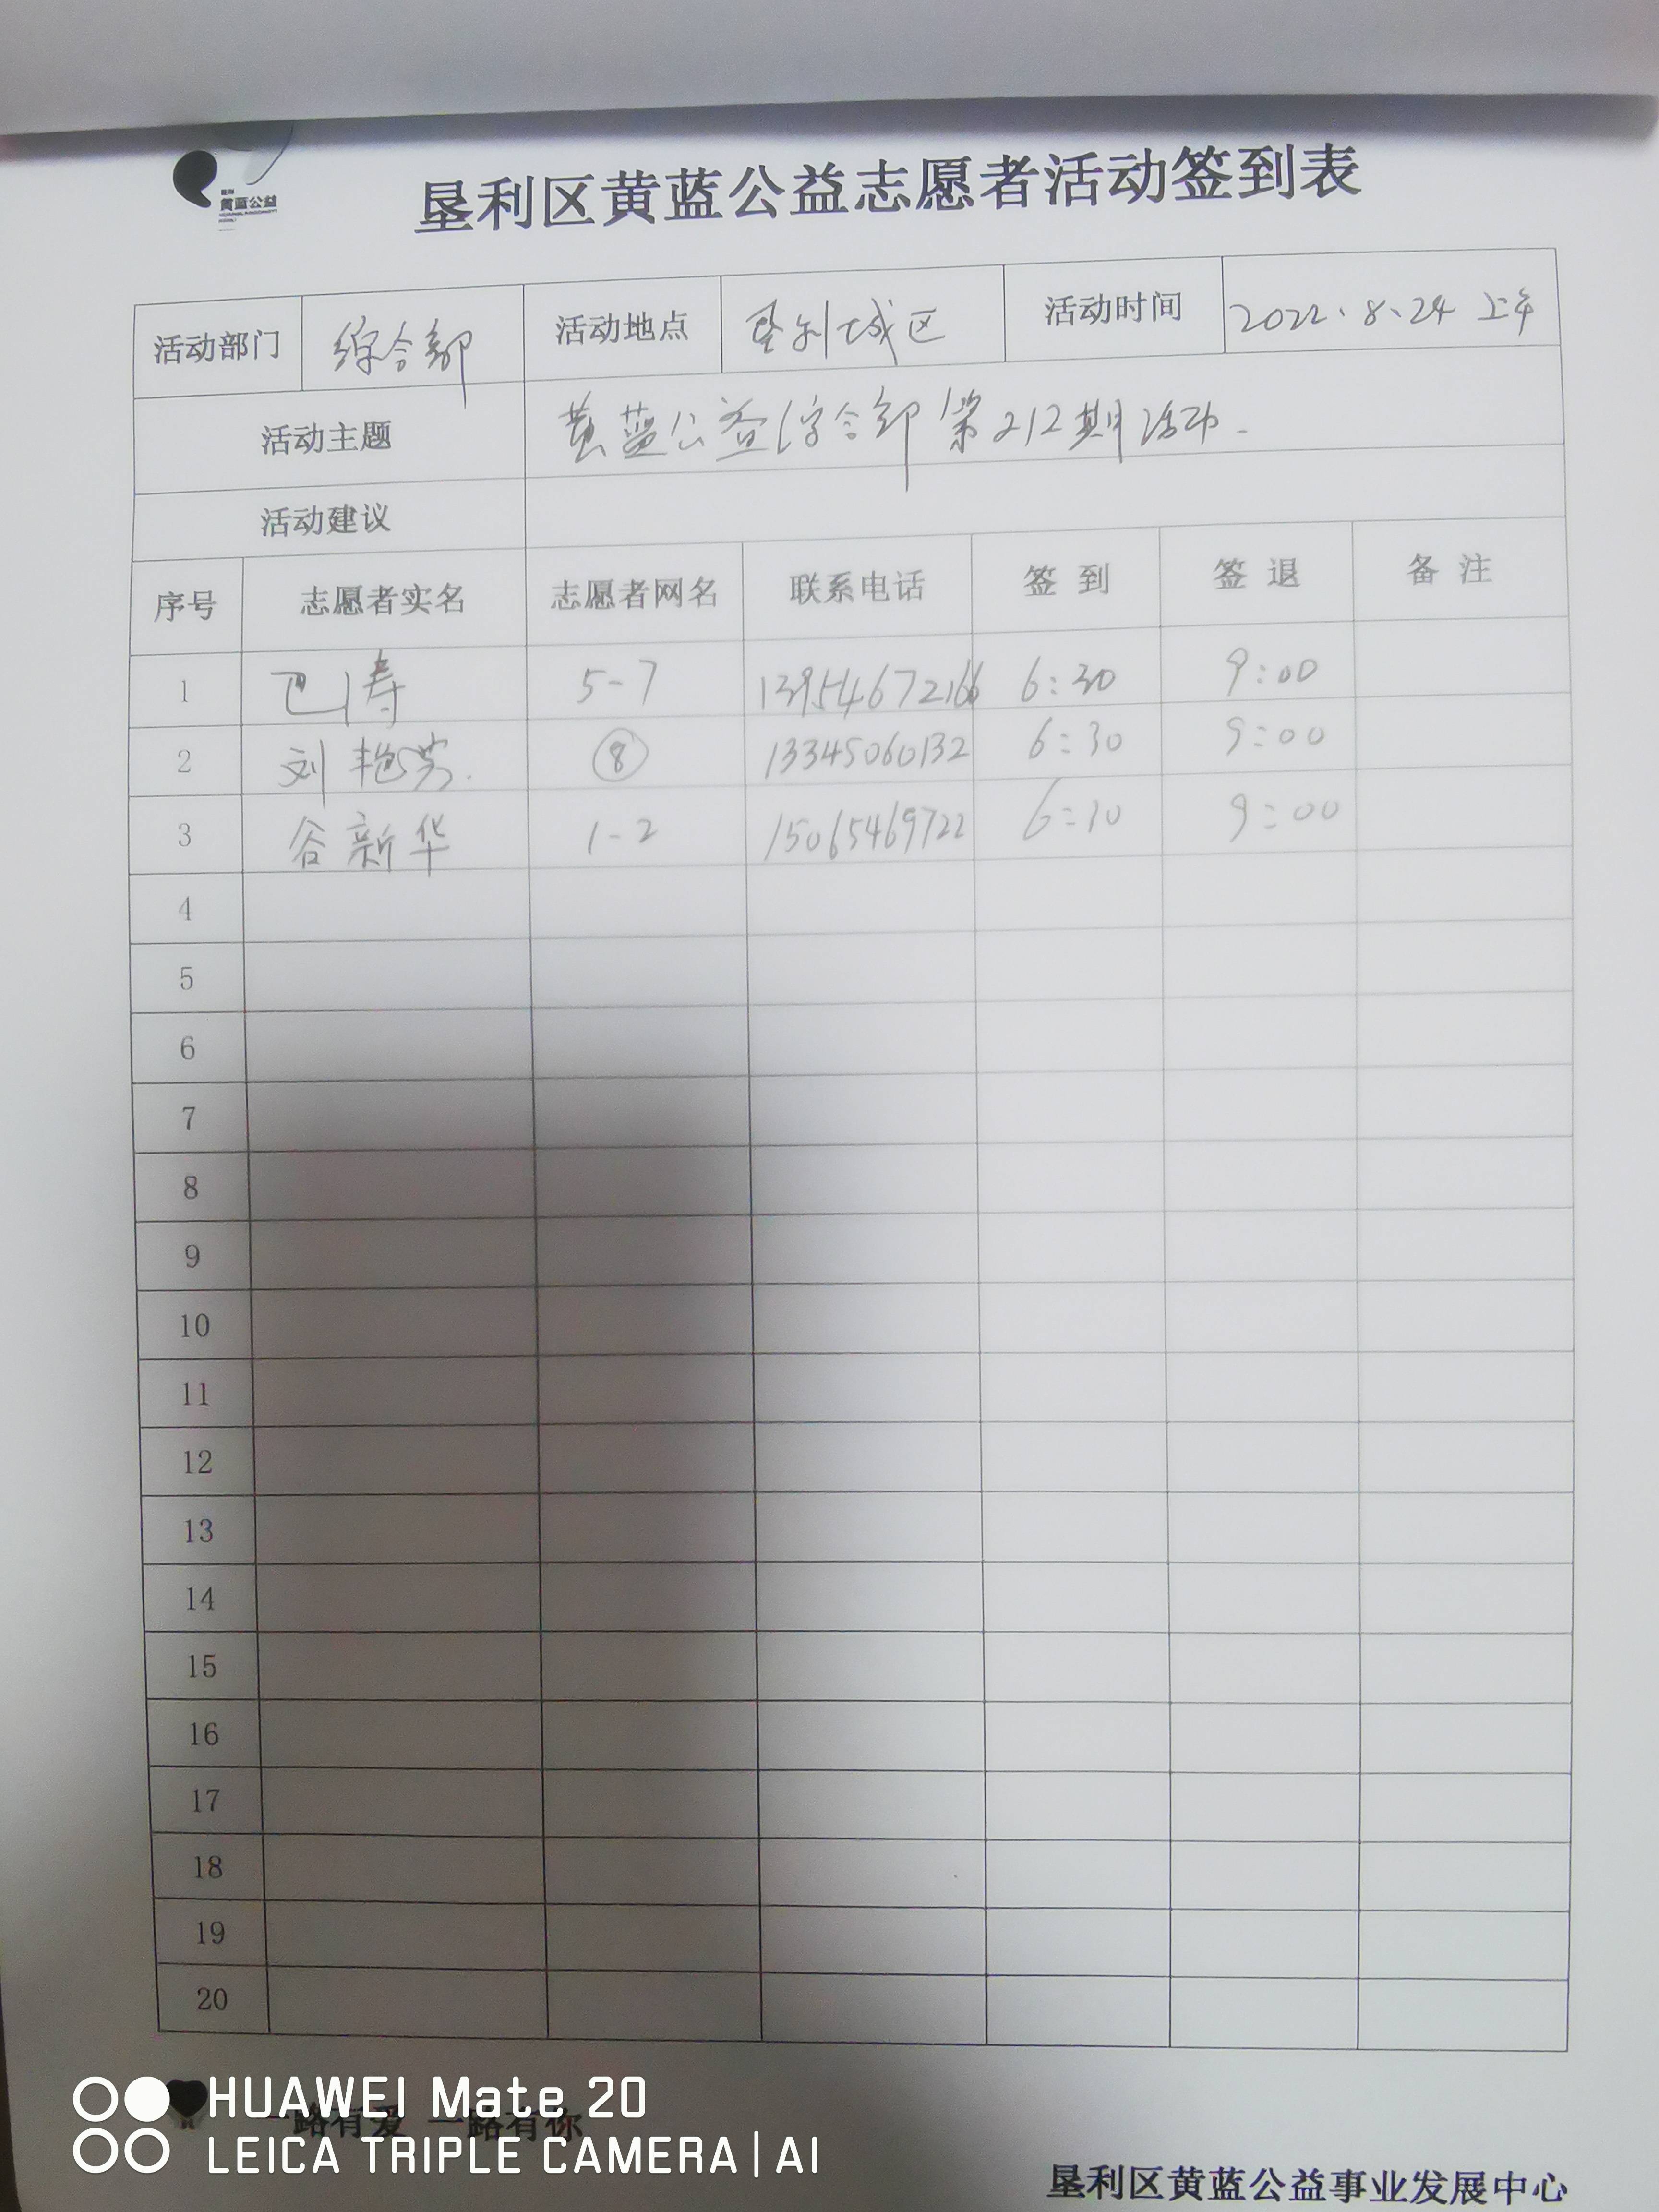 黄蓝公益
垦利区黄蓝公益志愿者活动签到表
活动部门 综合部 活动地点 垦利城区 活动时间 2022.8.24 上午
活动主题 黄蓝公益综合部第212期活动.
活动建议
序号 志愿者实名 志愿者网名 联系电话 签到 签退 备注
1 巴涛 5-7 13954672166 6:30 9:00
2 刘艳芳. ⑧ 13345060132 6:30 9:00
3 谷新华 1-2 15065469722 6:30 9:00
4
5
6
7
8
9
10
11
12
13
14
15
16
17
18
19
20
一路有爱 一路有你
HUAWEI Mate 20
LEICA TRIPLE CAMERA | AI
垦利区黄蓝公益事业发展中心